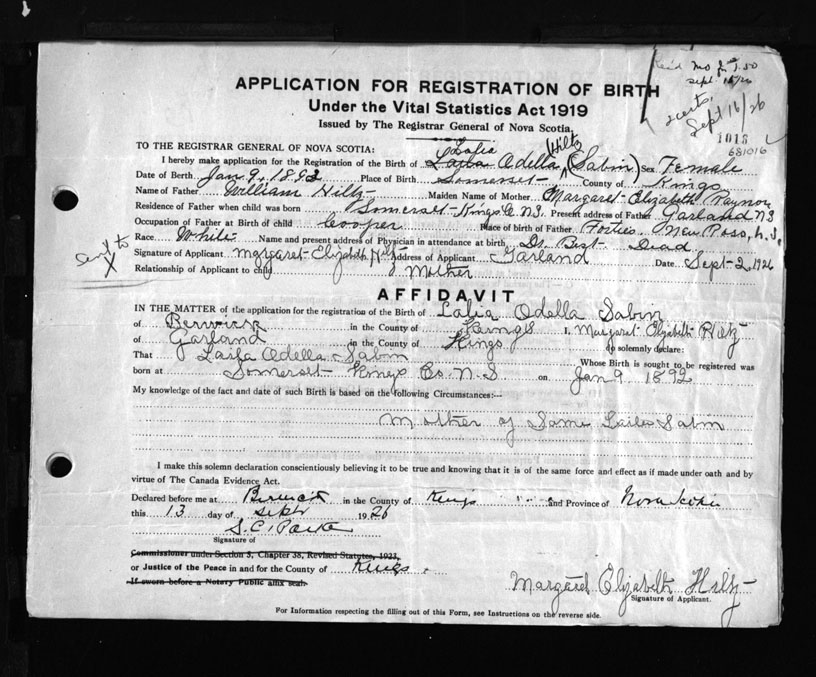 Rec'd mo for $1.50
Sept. 16/26
2 certs,
Sept 16/26
1018
681016
APPLICATION FOR REGISTRATION OF BIRTH
Under the Vital Statistics Act 1919
Issued by The Registrar General of Nova Scotia.
TO THE REGISTRAR GENERAL OF NOVA SCOTIA:
Lalia Hiltz
I hereby make application for the Registration of the Birth of Laila Odella (Sabin) Sex Female
Date of Birth Jan 9, 1892 Place of Birth Somerset County of Kings
Name of Father William Hiltz Maiden Name of Mother Margaret Elizabeth
Residence of Father when child was born Somerset Kings Co N.S. Present address of Father Garland N S
Occupation of Father at Birth of child Cooper Place of birth of Father Forties, New Ross, N.S.
Race White Name and present address of Physician in attendance at birth Dr. Best Dead
Sent to X
Signature of Applicant Margaret Elizabeth Hiltz Address of Applicant Garland Date Sept 2, 1926
Relationship of Applicant to child Mother
AFFIDAVIT
IN THE MATTER of the application for the registration of the Birth of Lalia Odella Sabin
of Berwick in the County of Kings I, Margaret Elizabeth Hiltz
of Garland in the County of Kings do solemnly declare:
That Laila Odella Sabin Whose Birth is sought to be registered was
born at Somerset Kings Co. N.S on Jan 9 1892
My knowledge of the fact and date of such Birth is based on the following Circumstances:—
Mother of Same Laila Sabin
I make this solemn declaration conscientiously believing it to be true and knowing that it is of the same force and effect as if made under oath and by
virtue of The Canada Evidence Act.
Declared before me at Berwick in the County of Kings and Province of Nova Scotia
this 13 day of Sept 1926
S. C. Parker
Signature of
Commissioner under Section 3, Chapter 38, Revised Statutes, 1923,
or Justice of the Peace in and for the County of Kings
If sworn before a Notary Public affix seal.
Margaret Elizabeth Hiltz
Signature of Applicant.
For Information respecting the filling out of this Form, see Instructions on the reverse side.